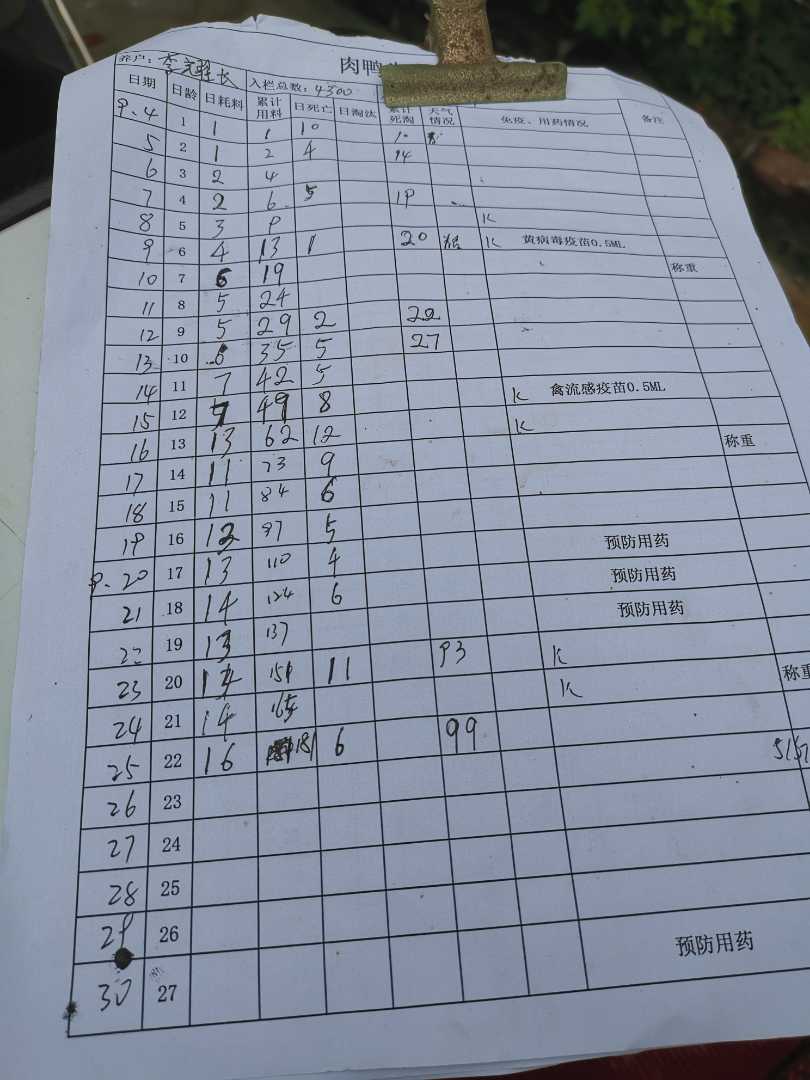 肉鸭
养户: 李 长 入栏总数: 4300
日期 日龄 日耗料 累计用料 日死亡 日淘汰 累计死淘 天气情况 免疫、用药情况 备注
9.4 1 1 1 10 10
5 2 1 2 4 14
6 3 2 4
7 4 2 6 5 19
8 5 3 9 K
9 6 4 13 1 20 K 黄病毒疫苗0.5ML
10 7 6 19 称重
11 8 5 24
12 9 5 29 2 22
13 10 6 35 5 27
14 11 7 42 5
15 12 7 49 8 K 禽流感疫苗0.5ML
16 13 13 62 12 K
17 14 11 73 9 称重
18 15 11 84 6
19 16 13 97 5
9.20 17 13 110 4 预防用药
21 18 14 124 6 预防用药
22 19 13 137 预防用药
23 20 14 151 11 93 K
24 21 14 165 K 称重
25 22 16 181 6 99
26 23
27 24
28 25
29 26
30 27 预防用药